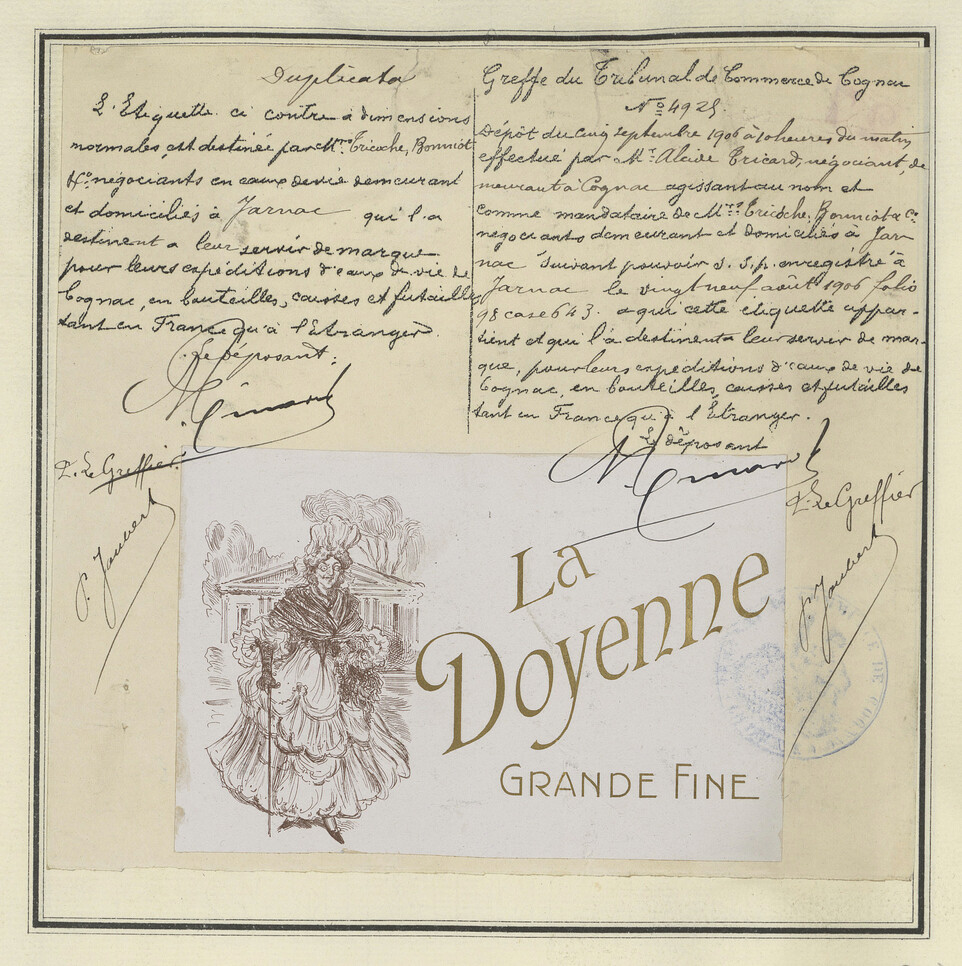 Duplicata
L'Etiquette ci contre à dimensions
normales, est destinée par Mrs Tricoche, Bonniot
& Co négociants en eaux de vie demeurant
et domiciliés à Jarnac qui l'a
destinent a leur servir de marque
pour leurs expéditions d'eaux de vie de
Cognac, en bouteilles, caisses et futailles
tant en France qu'à l'Etranger.
Le déposant:
P. Le Greffier.
P. Joubert
Greffe du Tribunal de Commerce de Cognac
No 4925.
Dépôt du cinq septembre 1906 a 10 heures du matin,
effectué par Mr Alcide Tricard, négociant, de
meurant à Cognac agissant au nom et
comme mandataire de Mrs Tricoche, Bonniot & Co
négociants demeurant et domiciliés à Jar
nac suivant pouvoir s. s. p. enregistré à
Jarnac le vingt neuf août 1906 folio
98 case 643. a qui cette étiquette appar-
tient et qui l'a destinent a leur servir de mar-
que, pour leurs expéditions d'eaux de vie de
Cognac, en bouteilles, caisses et futailles
tant en France qu'à l'Etranger.
Le déposant
P. Le Greffier
P. Joubert
La
Doyenne
GRANDE FINE
DE COGNAC